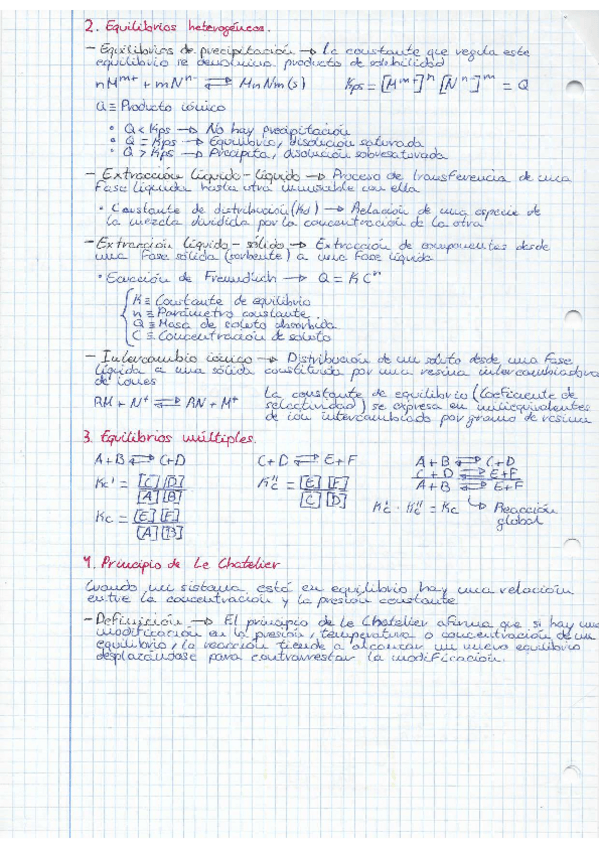 2. Equilibrios heterogéneos.
- Equilibrios de precipitación → La constante que regula este
equilibrio se denomina producto de solubilidad
nM^m+ + mN^n- ⇌ MnNm(s) Kps = [M^m+]^n [N^n-]^m = Q
Q ≡ Producto iónico
• Q < Kps → No hay precipitación
• Q = Kps → Equilibrio, disolución saturada
• Q > Kps → Precipita, disolución sobresaturada
- Extracción líquido-líquido → Proceso de transferencia de una
Fase líquida hasta otra inmiscible con ella
• Constante de distribución (Kd) → Relación de una especie de
la mezcla dividida por la concentración de la otra
- Extracción líquido-sólido → Extracción de componentes desde
una Fase sólida (sorbente) a una Fase líquida
• Ecuación de Freundlich → Q = KC^n
K ≡ Constante de equilibrio
n ≡ Parámetro constante
Q ≡ Masa de soluto absorbida
C ≡ Concentración de soluto
- Intercambio iónico → Distribución de un soluto desde una Fase
líquida a una sólida constituida por una resina intercambiadora
de iones
RM + N+ ⇌ RN + M+ La constante de equilibrio (Coeficiente de
selectividad) se expresa en miliequivalentes
de ion intercambiado por gramo de resina
3. Equilibrios múltiples.
A+B ⇌ C+D C+D ⇌ E+F A+B ⇌ C+D
C+D ⇌ E+F
A+B ⇌ E+F
Kc' = [C][D] / [A][B] Kc'' = [E][F] / [C][D] Kc' · Kc'' = Kc → Reacción
global
Kc = [E][F] / [A][B]
4. Principio de Le Chatelier
Cuando un sistema está en equilibrio hay una relación
entre la concentración y la presión constante
- Definición → El principio de Le Chatelier afirma que si hay una
modificación en la presión, temperatura o concentración de un
equilibrio, la reacción tiende a alcanzar un nuevo equilibrio
desplazándose para contrarrestar la modificación.